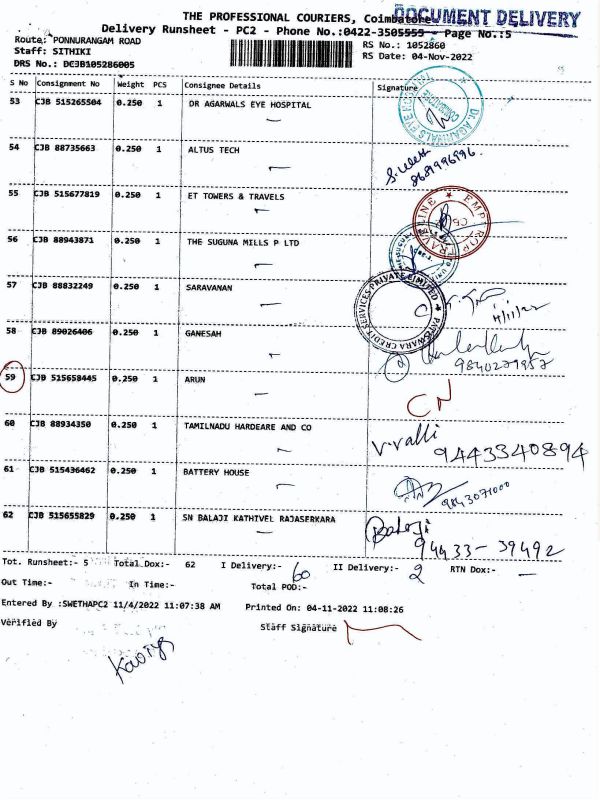 THE PROFESSIONAL COURIERS, Coimbatore
DOCUMENT DELIVERY
Delivery Runsheet - PC2 - Phone No.:0422-3505555 - Page No.:5
Route: PONNURANGAM ROAD
RS No.: 1052860
Staff: SITHIKI
RS Date: 04-Nov-2022
DRS No.: DC3B105286005
S No Consignment No Weight PCS Consignee Details Signature
53 CJB 515265504 0.250 1 DR AGARWALS EYE HOSPITAL
DR. AGARWALS EYE
COIMBATORE
54 CJB 88735663 0.250 1 ALTUS TECH
8681996996
55 CJB 515677819 0.250 1 ET TOWERS & TRAVELS
EMPEROR TRAVELINE
CBE
56 CJB 88943871 0.250 1 THE SUGUNA MILLS P LTD
57 CJB 88832249 0.250 1 SARAVANAN
CREDIT SERVICES PRIVATE LIMITED
4/11/22
58 CJB 89026406 0.250 1 GANESAH
9840279957
59 CJB 515658445 0.250 1 ARUN
CN
60 CJB 88934350 0.250 1 TAMILNADU HARDEARE AND CO
V.valli 9443340894
61 CJB 515436462 0.250 1 BATTERY HOUSE
9843071000
62 CJB 515655829 0.250 1 SN BALAJI KATHIVEL RAJASERKARA
Balaji
94433-39492
Tot. Runsheet:- 5 Total Dox:- 62 I Delivery:- 60 II Delivery:- 2 RTN Dox:- —
Out Time:- In Time:- Total POD:-
Entered By :SWETHAPC2 11/4/2022 11:07:38 AM Printed On: 04-11-2022 11:08:26
Verified By Staff Signature